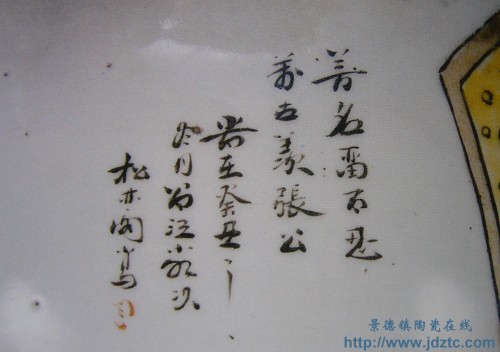 名留百忍
萬古羨張公
歲在癸丑之
冬月江次
松閣寫
景德镇陶瓷在线
http://www.jdztc.com